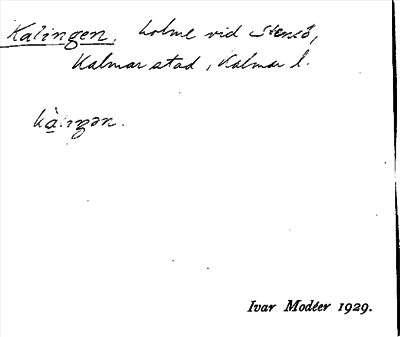 Kalingen, holme vid Stensö,
Kalmar stad, Kalmar l.
Ivar Modéer 1929.